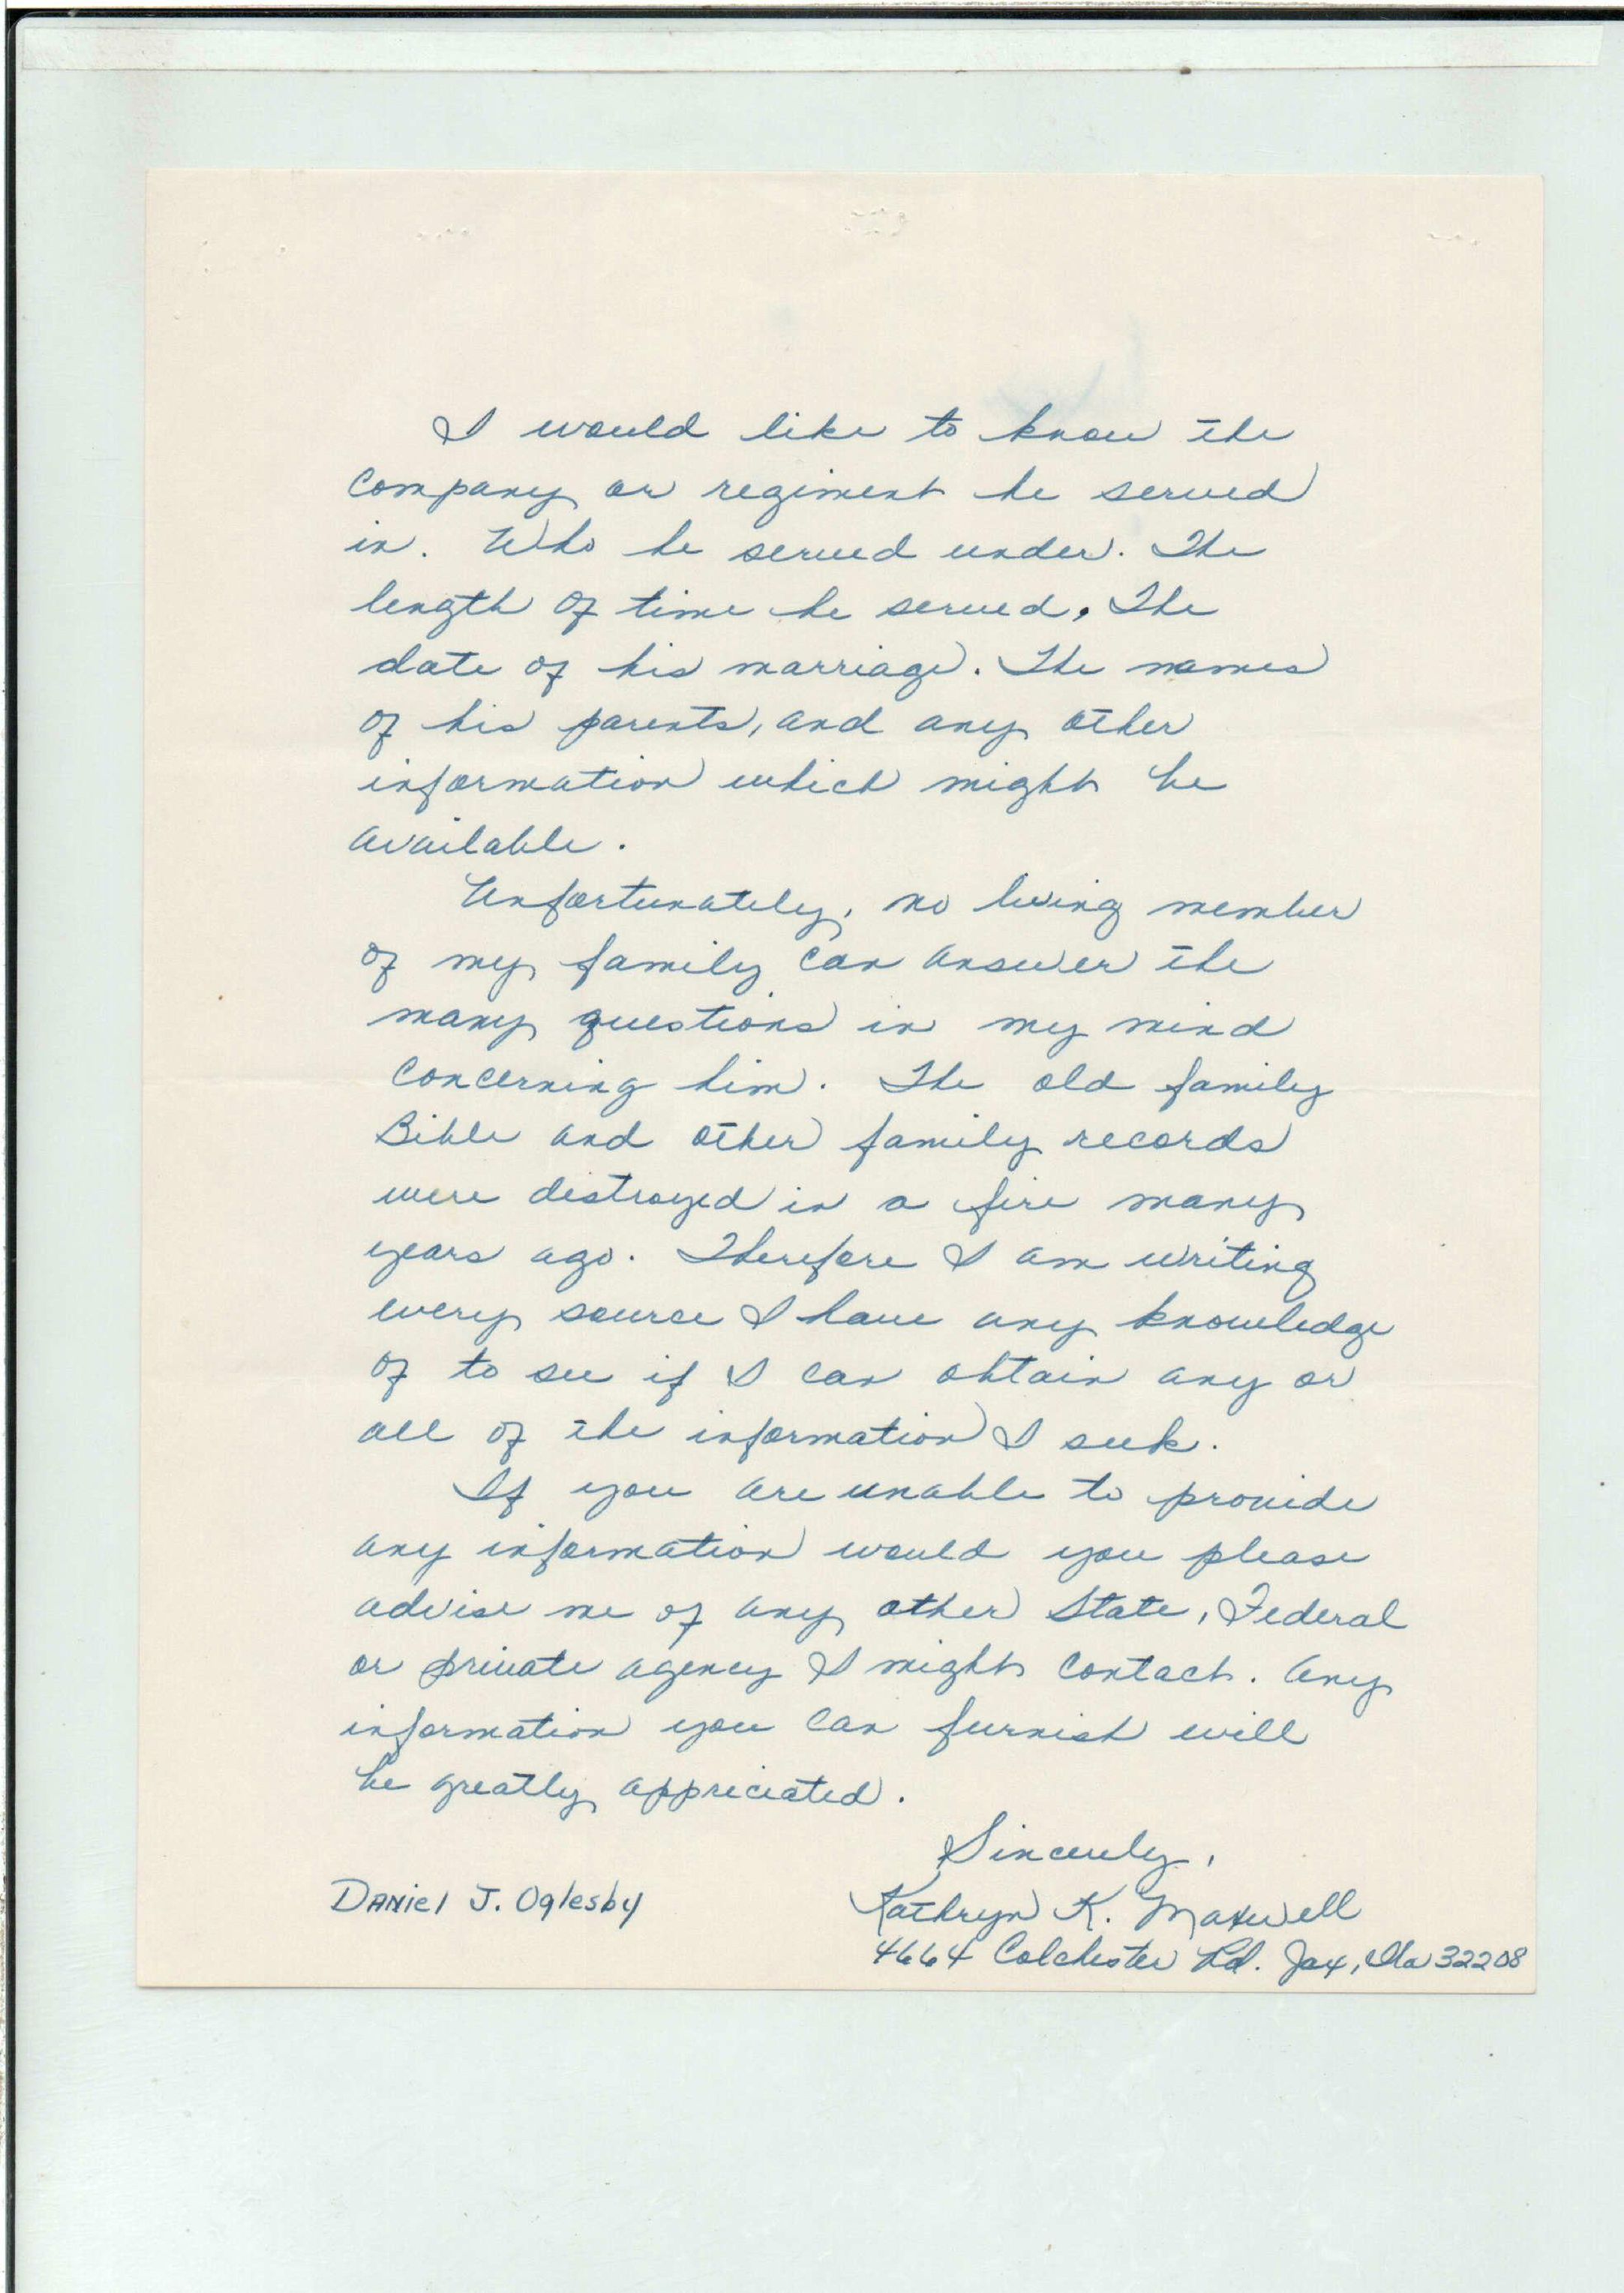 I would like to know the
company or regiment he served
in. Who he served under. The
length of time he served. The
date of his marriage. The names
of his parents, and any other
information which might be
available.
Unfortunately, no living member
of my family can answer the
many questions in my mind
concerning him. The old family
Bible and other family records
were distroyed in a fire many
years ago. Therefore I am writing
every source I have any knowledge
of to see if I can obtain any or
all of the information I seek.
If you are unable to provide
any information would you please
advise me of any other State, Federal
or private agency I might contact. Any
information you can furnish will
be greatly appreciated.
Sincerely,
Daniel J. Oglesby
Kathryn K. Maxwell
4664 Colchester Rd. Jax, Fla 32208